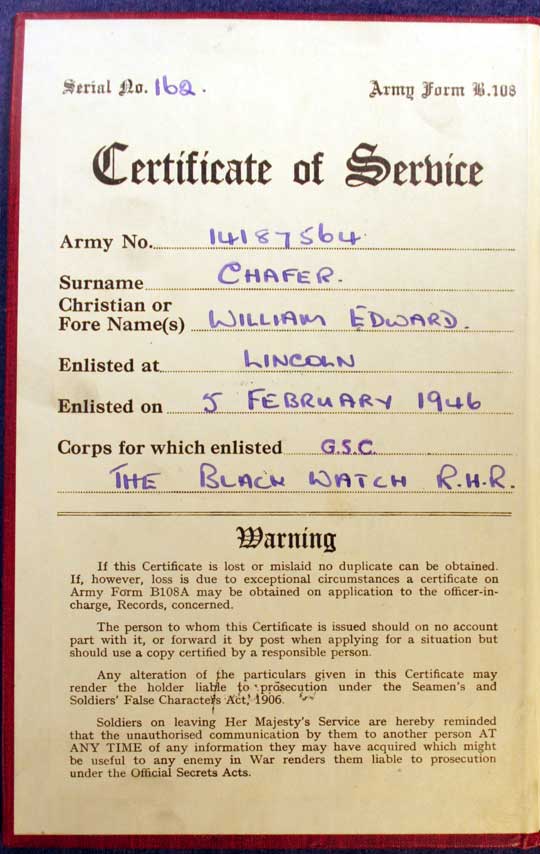 Serial No. 162.
Army Form B.108
Certificate of Service
Army No. 14187564
Surname CHAFER.
Christian or
Fore Name(s) WILLIAM EDWARD.
Enlisted at LINCOLN
Enlisted on 5 FEBRUARY 1946
Corps for which enlisted G.S.C.
THE BLACK WATCH R.H.R.
Warning
If this Certificate is lost or mislaid no duplicate can be obtained.
If, however, loss is due to exceptional circumstances a certificate on
Army Form B108A may be obtained on application to the officer-in-
charge, Records, concerned.
The person to whom this Certificate is issued should on no account
part with it, or forward it by post when applying for a situation but
should use a copy certified by a responsible person.
Any alteration of the particulars given in this Certificate may
render the holder liable to prosecution under the Seamen's and
Soldiers' False Characters Act, 1906.
Soldiers on leaving Her Majesty's Service are hereby reminded
that the unauthorised communication by them to another person AT
ANY TIME of any information they may have acquired which might
be useful to any enemy in War renders them liable to prosecution
under the Official Secrets Acts.